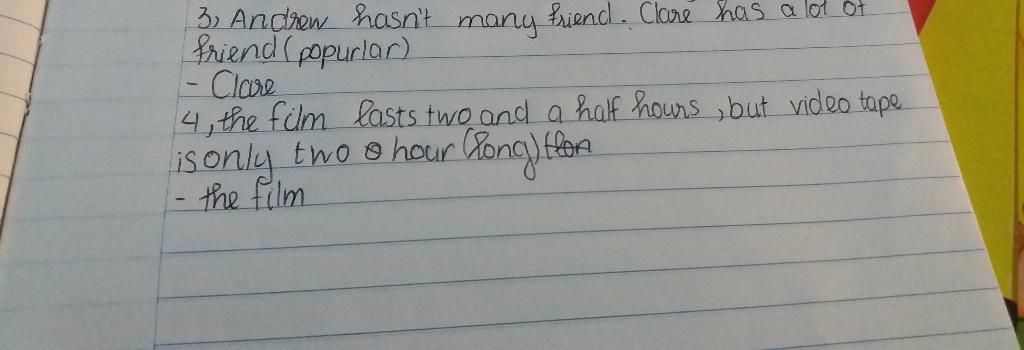 3, Andrew hasn't many friend. Clare has a lot of
friend (popurlar)
- Clare
4, the film lasts two and a half hours, but video tape
is only two hour (long)
- the film